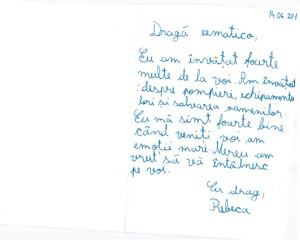 14.06.201
Dragă eematico,
Eu am învătat foarte
multe de la voi. Am învățat
despre pompieri, echipamente
lor și salvarea oamenilor.
Eu mă simt foarte bine
când veniți voi am
emoții mari. Mereu am
vrut să vă întâlnesc
pe voi.
Cu drag,
Rebeca